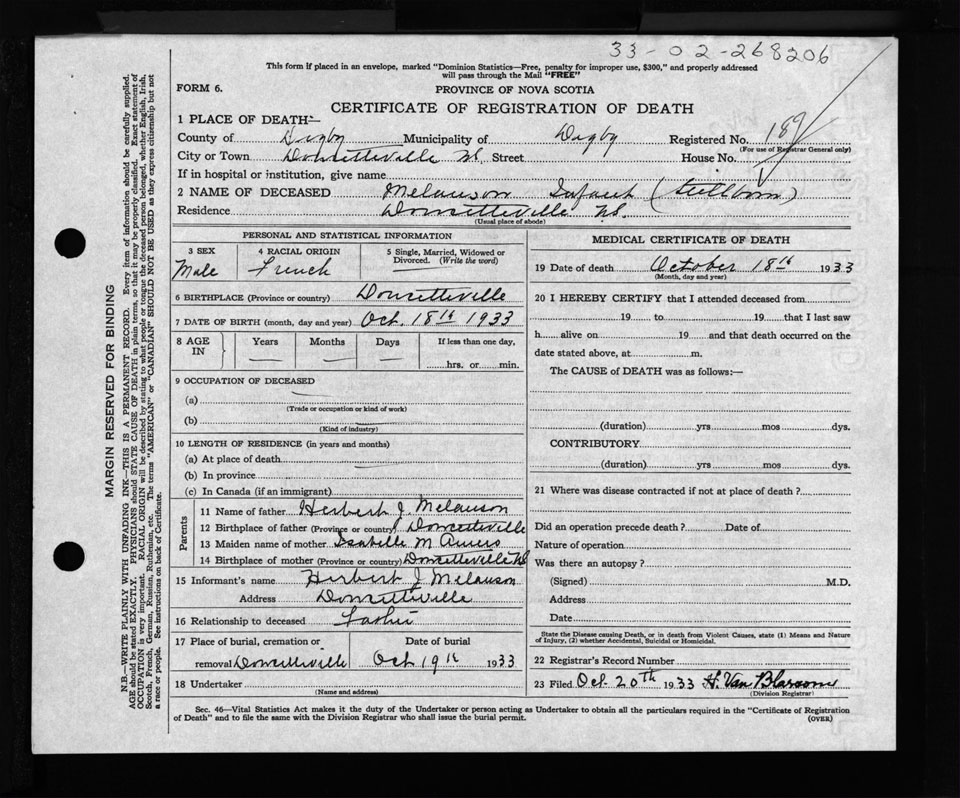 33-02-268206
This form if placed in an envelope, marked "Dominion Statistics—Free, penalty for improper use, $300," and properly addressed
will pass through the Mail "FREE"
FORM 6.
PROVINCE OF NOVA SCOTIA
CERTIFICATE OF REGISTRATION OF DEATH
1 PLACE OF DEATH—
County of Digby Municipality of Digby Registered No. 189
(For use of Registrar General only)
City or Town Doucetteville N.S. Street House No.
If in hospital or institution, give name
2 NAME OF DECEASED Melanson Infant (Stillborn)
Residence Doucetteville N.S.
(Usual place of abode)
PERSONAL AND STATISTICAL INFORMATION
3 SEX
Male
4 RACIAL ORIGIN
French
5 Single, Married, Widowed or
Divorced. (Write the word)
6 BIRTHPLACE (Province or country) Doucetteville
7 DATE OF BIRTH (month, day and year) Oct. 18th 1933
8 AGE
IN
Years
Months
Days
If less than one day,
hrs. or min.
9 OCCUPATION OF DECEASED
(a)
(Trade or occupation or kind of work)
(b)
(Kind of industry)
10 LENGTH OF RESIDENCE (in years and months)
(a) At place of death
(b) In province
(c) In Canada (if an immigrant)
Parents
11 Name of father Herbert J. Melanson
12 Birthplace of father (Province or country) Doucetteville
13 Maiden name of mother Isabelle M
14 Birthplace of mother (Province or country) Doucetteville NS
15 Informant's name Herbert J Melanson
Address Doucetteville
16 Relationship to deceased Father
17 Place of burial, cremation or
removal Doucetteville
Date of burial
Oct 19th 1933
18 Undertaker
(Name and address)
MEDICAL CERTIFICATE OF DEATH
19 Date of death October 18th 1933
(Month, day and year)
20 I HEREBY CERTIFY that I attended deceased from
19 to 19 that I last saw
h alive on 19 and that death occurred on the
date stated above, at m.
The CAUSE of DEATH was as follows:—
(duration) yrs mos dys.
CONTRIBUTORY
(duration) yrs mos dys.
21 Where was disease contracted if not at place of death?
Did an operation precede death? Date of
Nature of operation
Was there an autopsy?
(Signed) M.D.
Address
Date
State the Disease causing Death, or in death from Violent Causes, state (1) Means and Nature
of Injury, (2) whether Accidental, Suicidal or Homicidal.
22 Registrar's Record Number
23 Filed Oct. 20th 1933 H. Van Blarcom
(Division Registrar)
Sec. 46—Vital Statistics Act makes it the duty of the Undertaker or person acting as Undertaker to obtain all the particulars required in the "Certificate of Registration
of Death" and to file the same with the Division Registrar who shall issue the burial permit.
(OVER)
MARGIN RESERVED FOR BINDING
N.B.—WRITE PLAINLY WITH UNFADING INK—THIS IS A PERMANENT RECORD. Every item of information should be carefully supplied.
AGE should be stated EXACTLY. PHYSICIANS should STATE CAUSE OF DEATH in plain terms, so that it may be properly classified. Exact statement of
OCCUPATION is very important. RACIAL ORIGIN will be described by stating to what people or tongue the deceased person belonged, whether English, Irish,
Scotch, French, German, Russian, Ruthenian, etc. The terms "AMERICAN" or "CANADIAN" SHOULD NOT BE USED as they express citizenship but not
a race or people. See instructions on back of Certificate.